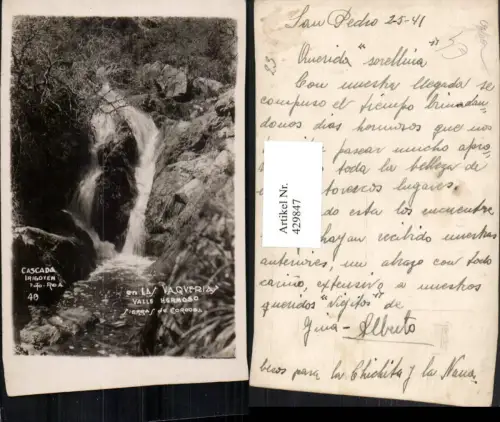 CASCADA
IRIGOYEN
Foto-RIOJA
40
en LAS VAQUERIAS
VALLE HERMOSO
SIERRAS de CORDOBA
San Pedro 25-41
23
Querida "sorellina"
Con nuestra llegada se
compuso el tiempo brindan
donos días hermosos que nos
pasear mucho apro
toda la belleza de
lugares.
do esta los encuentre
hayan recibido nuestras
anteriores, un abrazo con todo
cariño, extensivo a nuestros
queridos "viejitos" de
Gina - Alberto
besos para la Chichita y la Nena.
Artikel Nr.
429847